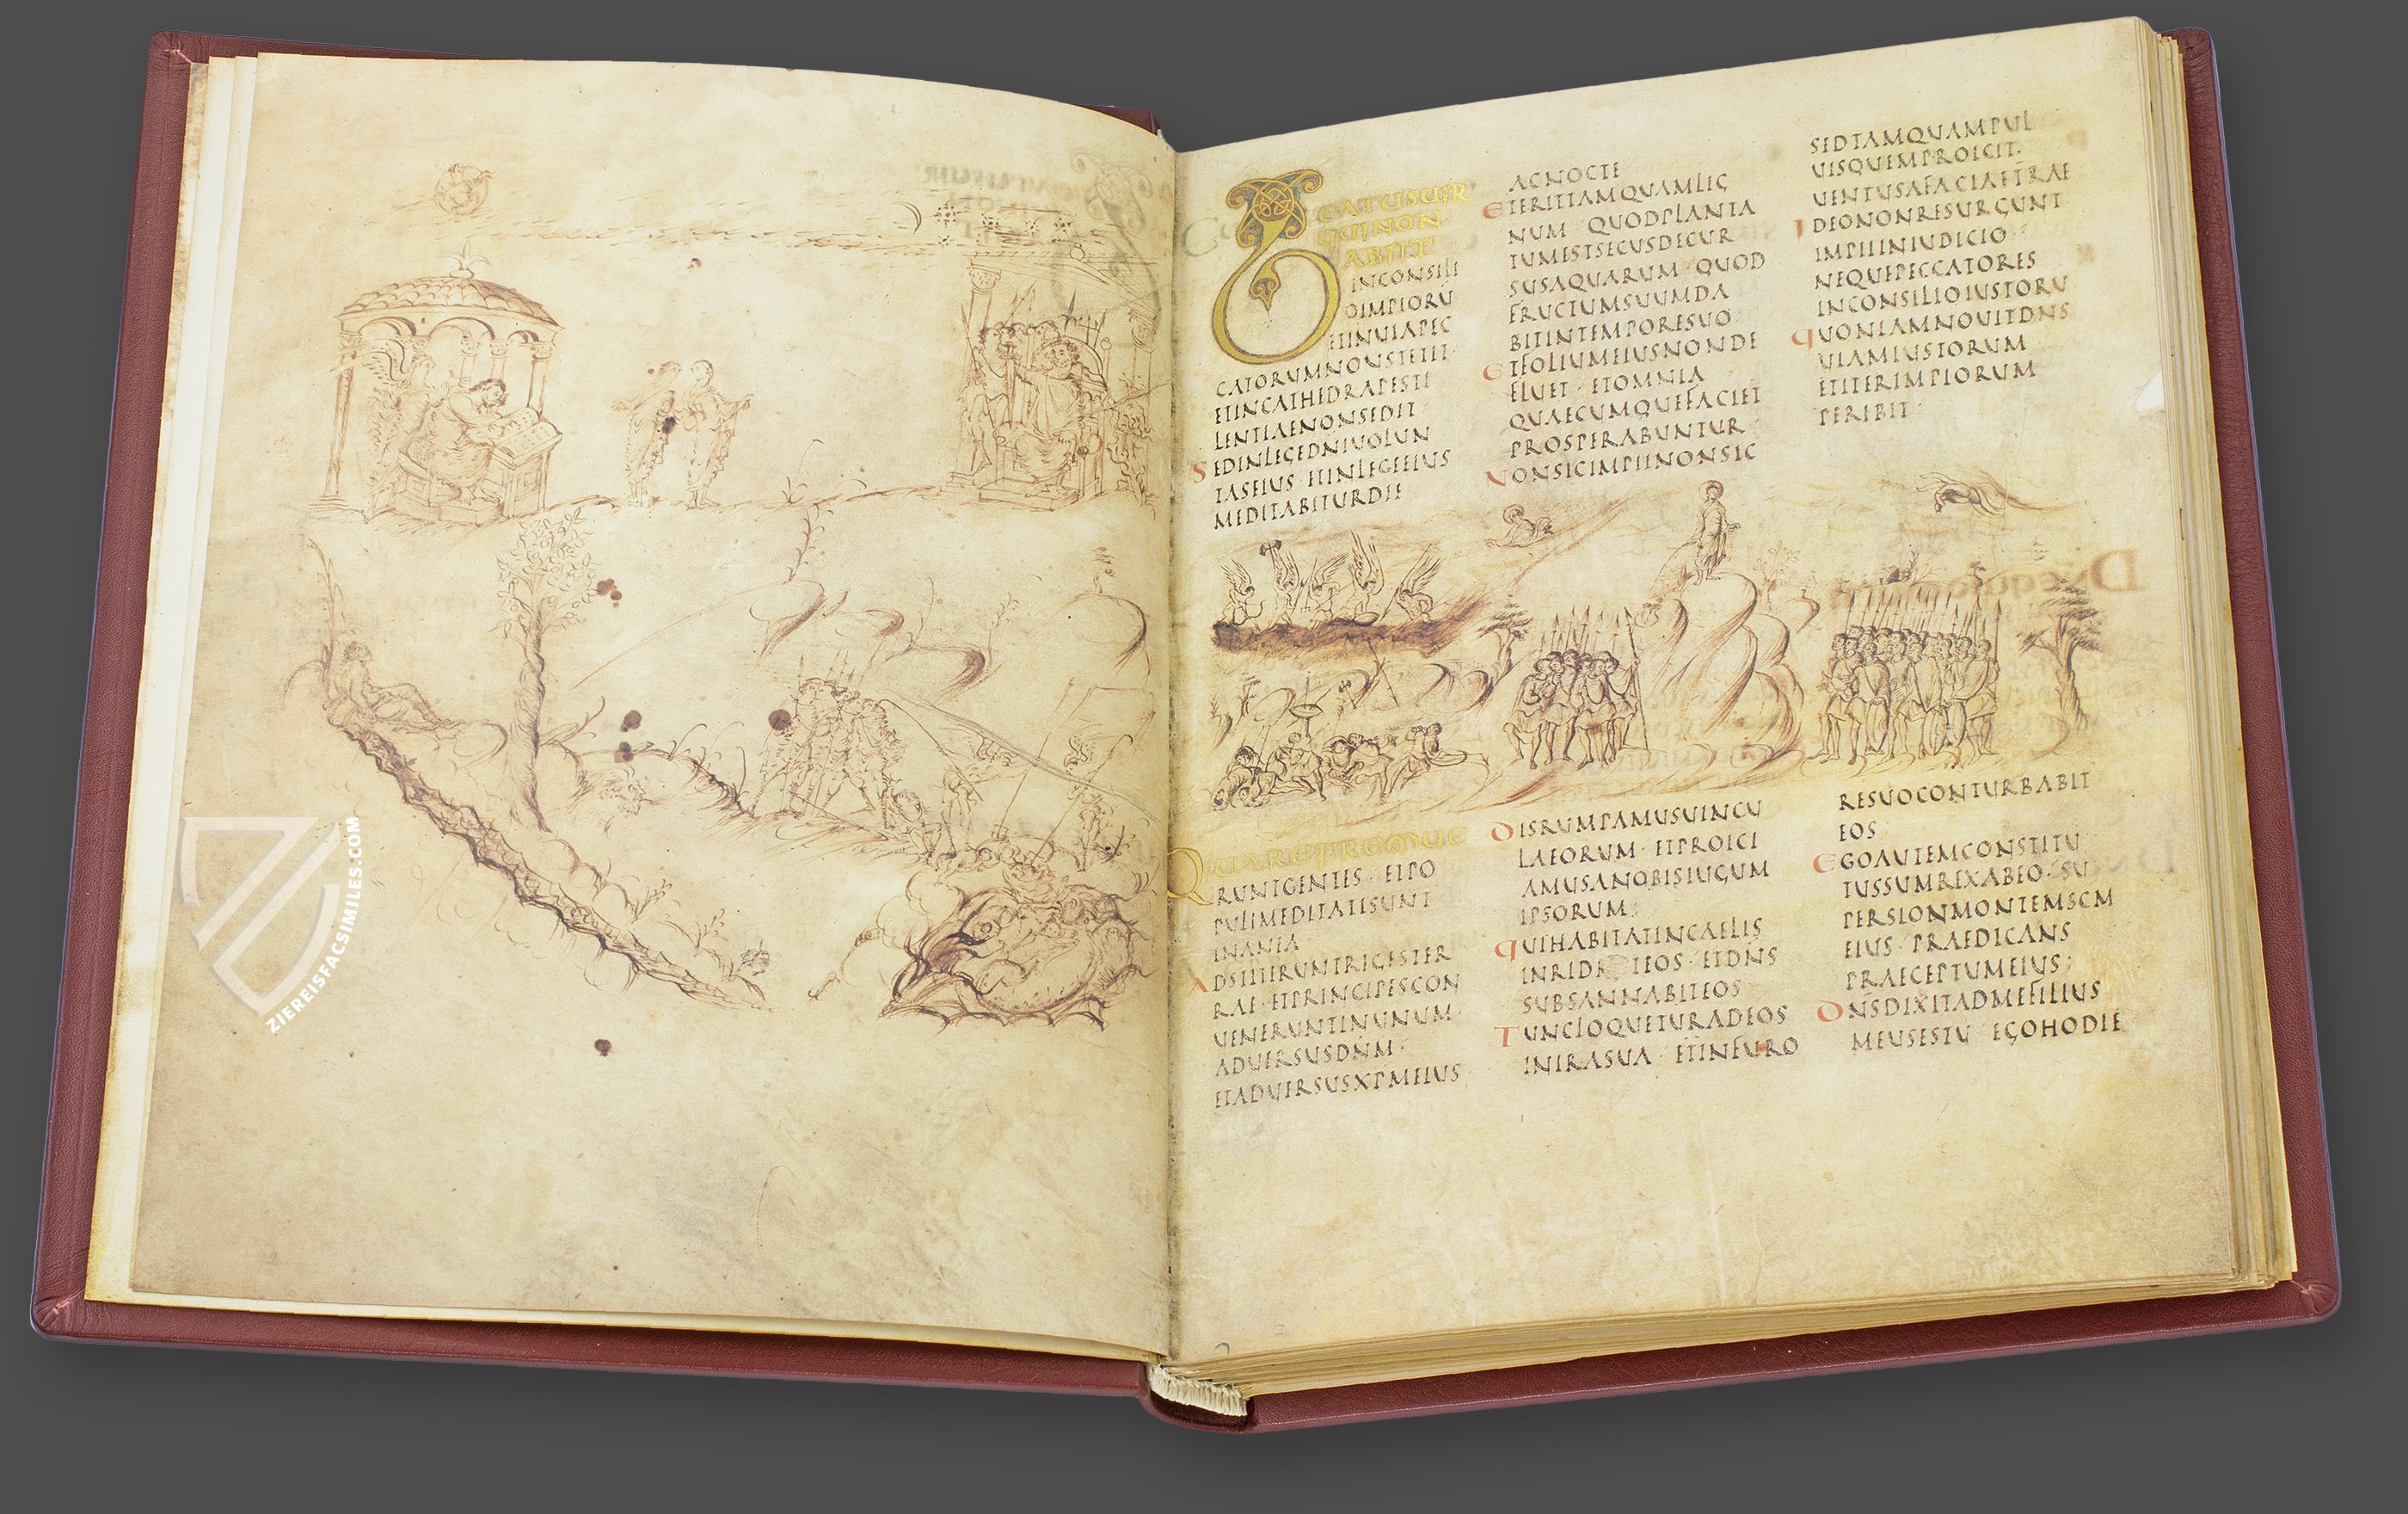 BEATUSUIR
QUINON
ABIIT
INCONSILI
OIMPIORŪ
ETINUIAPEC
CATORUMNONSTETIT·
ETINCATHEDRAPESTI
LENTIAENONSEDIT·
SEDINLEGEDNIUOLUN
TASEIUS· ETINLEGEEIUS
MEDITABITURDIE
ACNOCTE
ETERITTAMQUAMLIG
NUM QUODPLANTA
TUMESTSECUSDECUR
SUSAQUARUM· QUOD
FRUCTUMSUUMDA
BITINTEMPORESUO
ETFOLIUMEIUSNONDE
FLUET· ETOMNIA
QUAECUMQUEFACIET
PROSPERABUNTUR
NONSICIMPIINONSIC
SEDTAMQUAMPUL
UISQUEMPROICIT·
UENTUSAFACIAETRAE
IDEONONRESURGUNT
IMPIIINIUDICIO
NEQUEPECCATORES
INCONSILIOIUSTORU
QUONIAMNOUITDNS
UIAMIUSTORUM
ETITERIMPIORUM
PERIBIT·
QUAREFREMUE
RUNTGENTES· ETPO
PULIMEDITATISUNT
INANIA
ADSTITERUNTREGESTER
RAE· ETPRINCIPESCON
UENERUNTINUNUM·
ADUERSUSDNM·
ETADUERSUSXPMEIUS
DISRUMPAMUSUINCU
LAEORUM· ETPROICI
AMUSANOBISIUGUM
IPSORUM;
QUIHABITATINCAELIS
INRIDE IEOS· ETDNS
SUBSANNABITEOS
TUNCLOQUETURADEOS
INIRASUA· ETINFURO
RESUOCONTURBABIT
EOS
EGOAUTEMCONSTITU
TUSSUMREXABEO· SU
PERSIONMONTEMSCM
EIUS· PRAEDICANS
PRAECEPTUMEIUS;
DNSDIXITADMEFILIUS
MEUSESTU EGOHODIE
ZIEREISFACSIMILES.COM